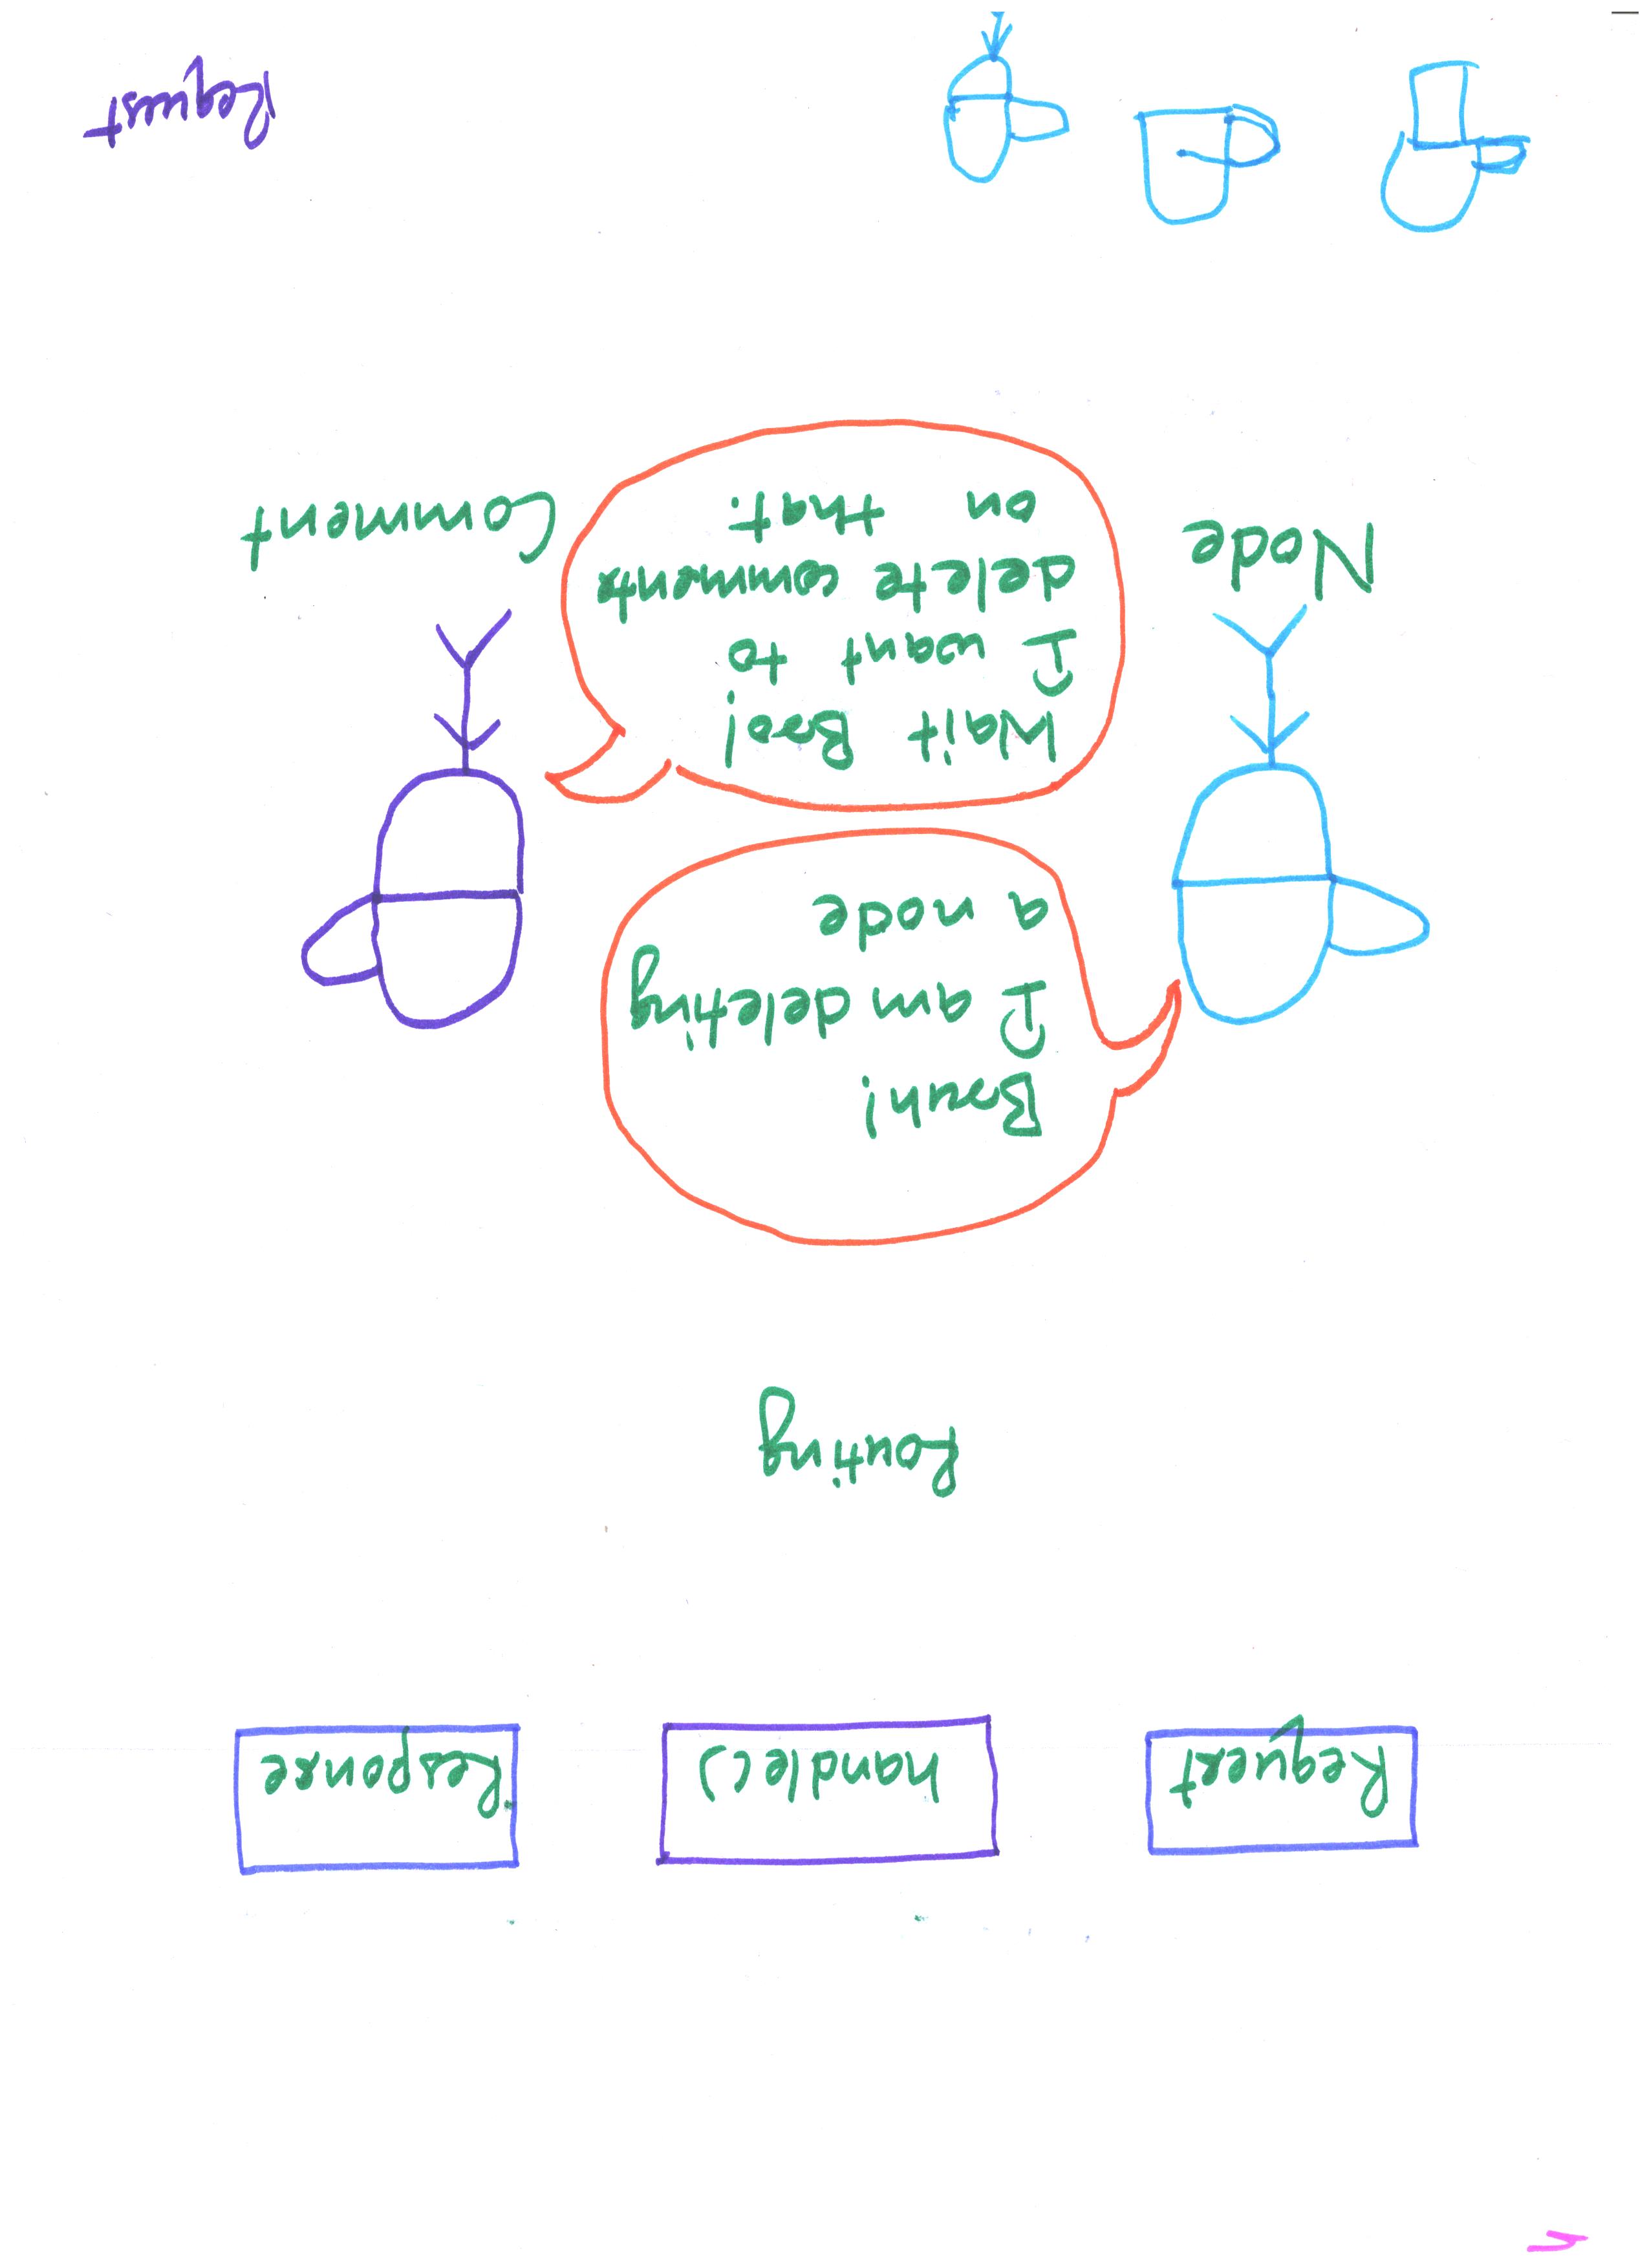 Request
handle()
Response
Routing
Bruh!
I am deleting
a node
Wait Bro!
I want to
delete comments
on that.
Node
Comment
Request